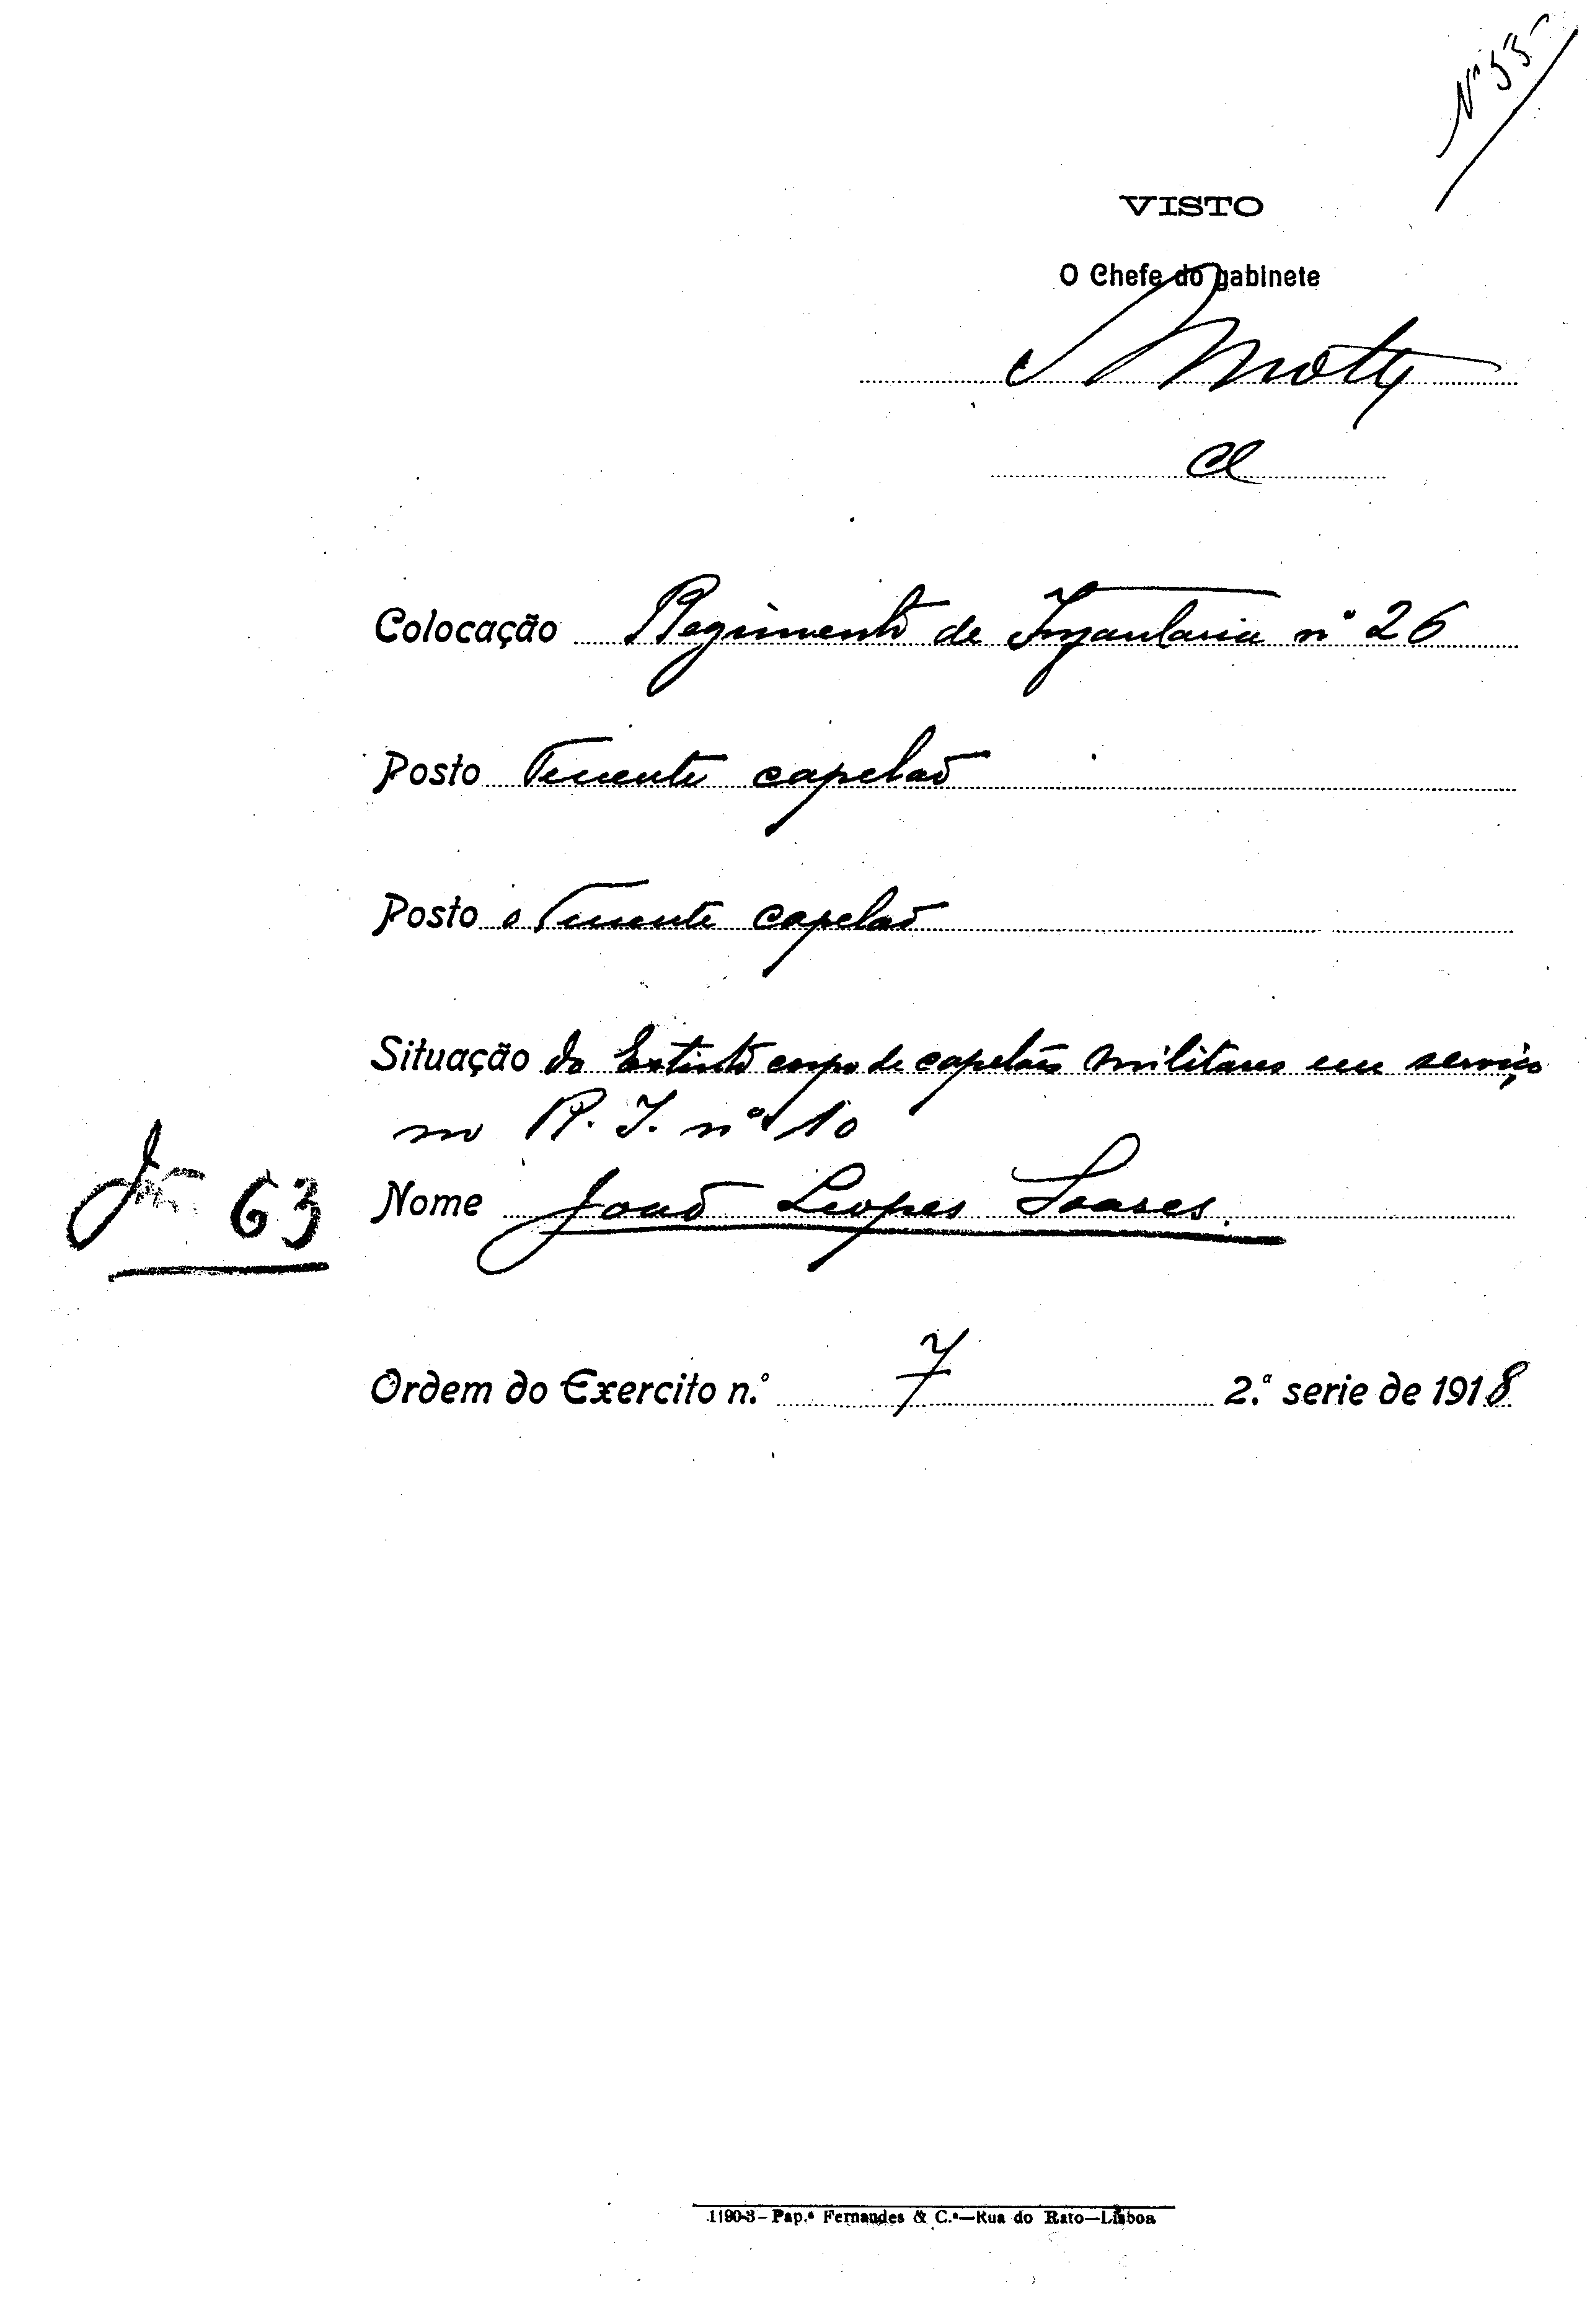 Nº 55
VISTO
O Chefe do gabinete
Motta
Colocação Regimento de Infantaria nº 26
Posto Tenente capelão
Posto o Tenente capelão
Situação do Extinto corpo de capelães militares em serviço
no R. I. nº 10
63
Nome João Lopes Soares.
Ordem do Exercito n.º 7 2.ª serie de 1918
1190-3–Pap.ª Fernandes & C.ª—Rua do Rato—Lisboa